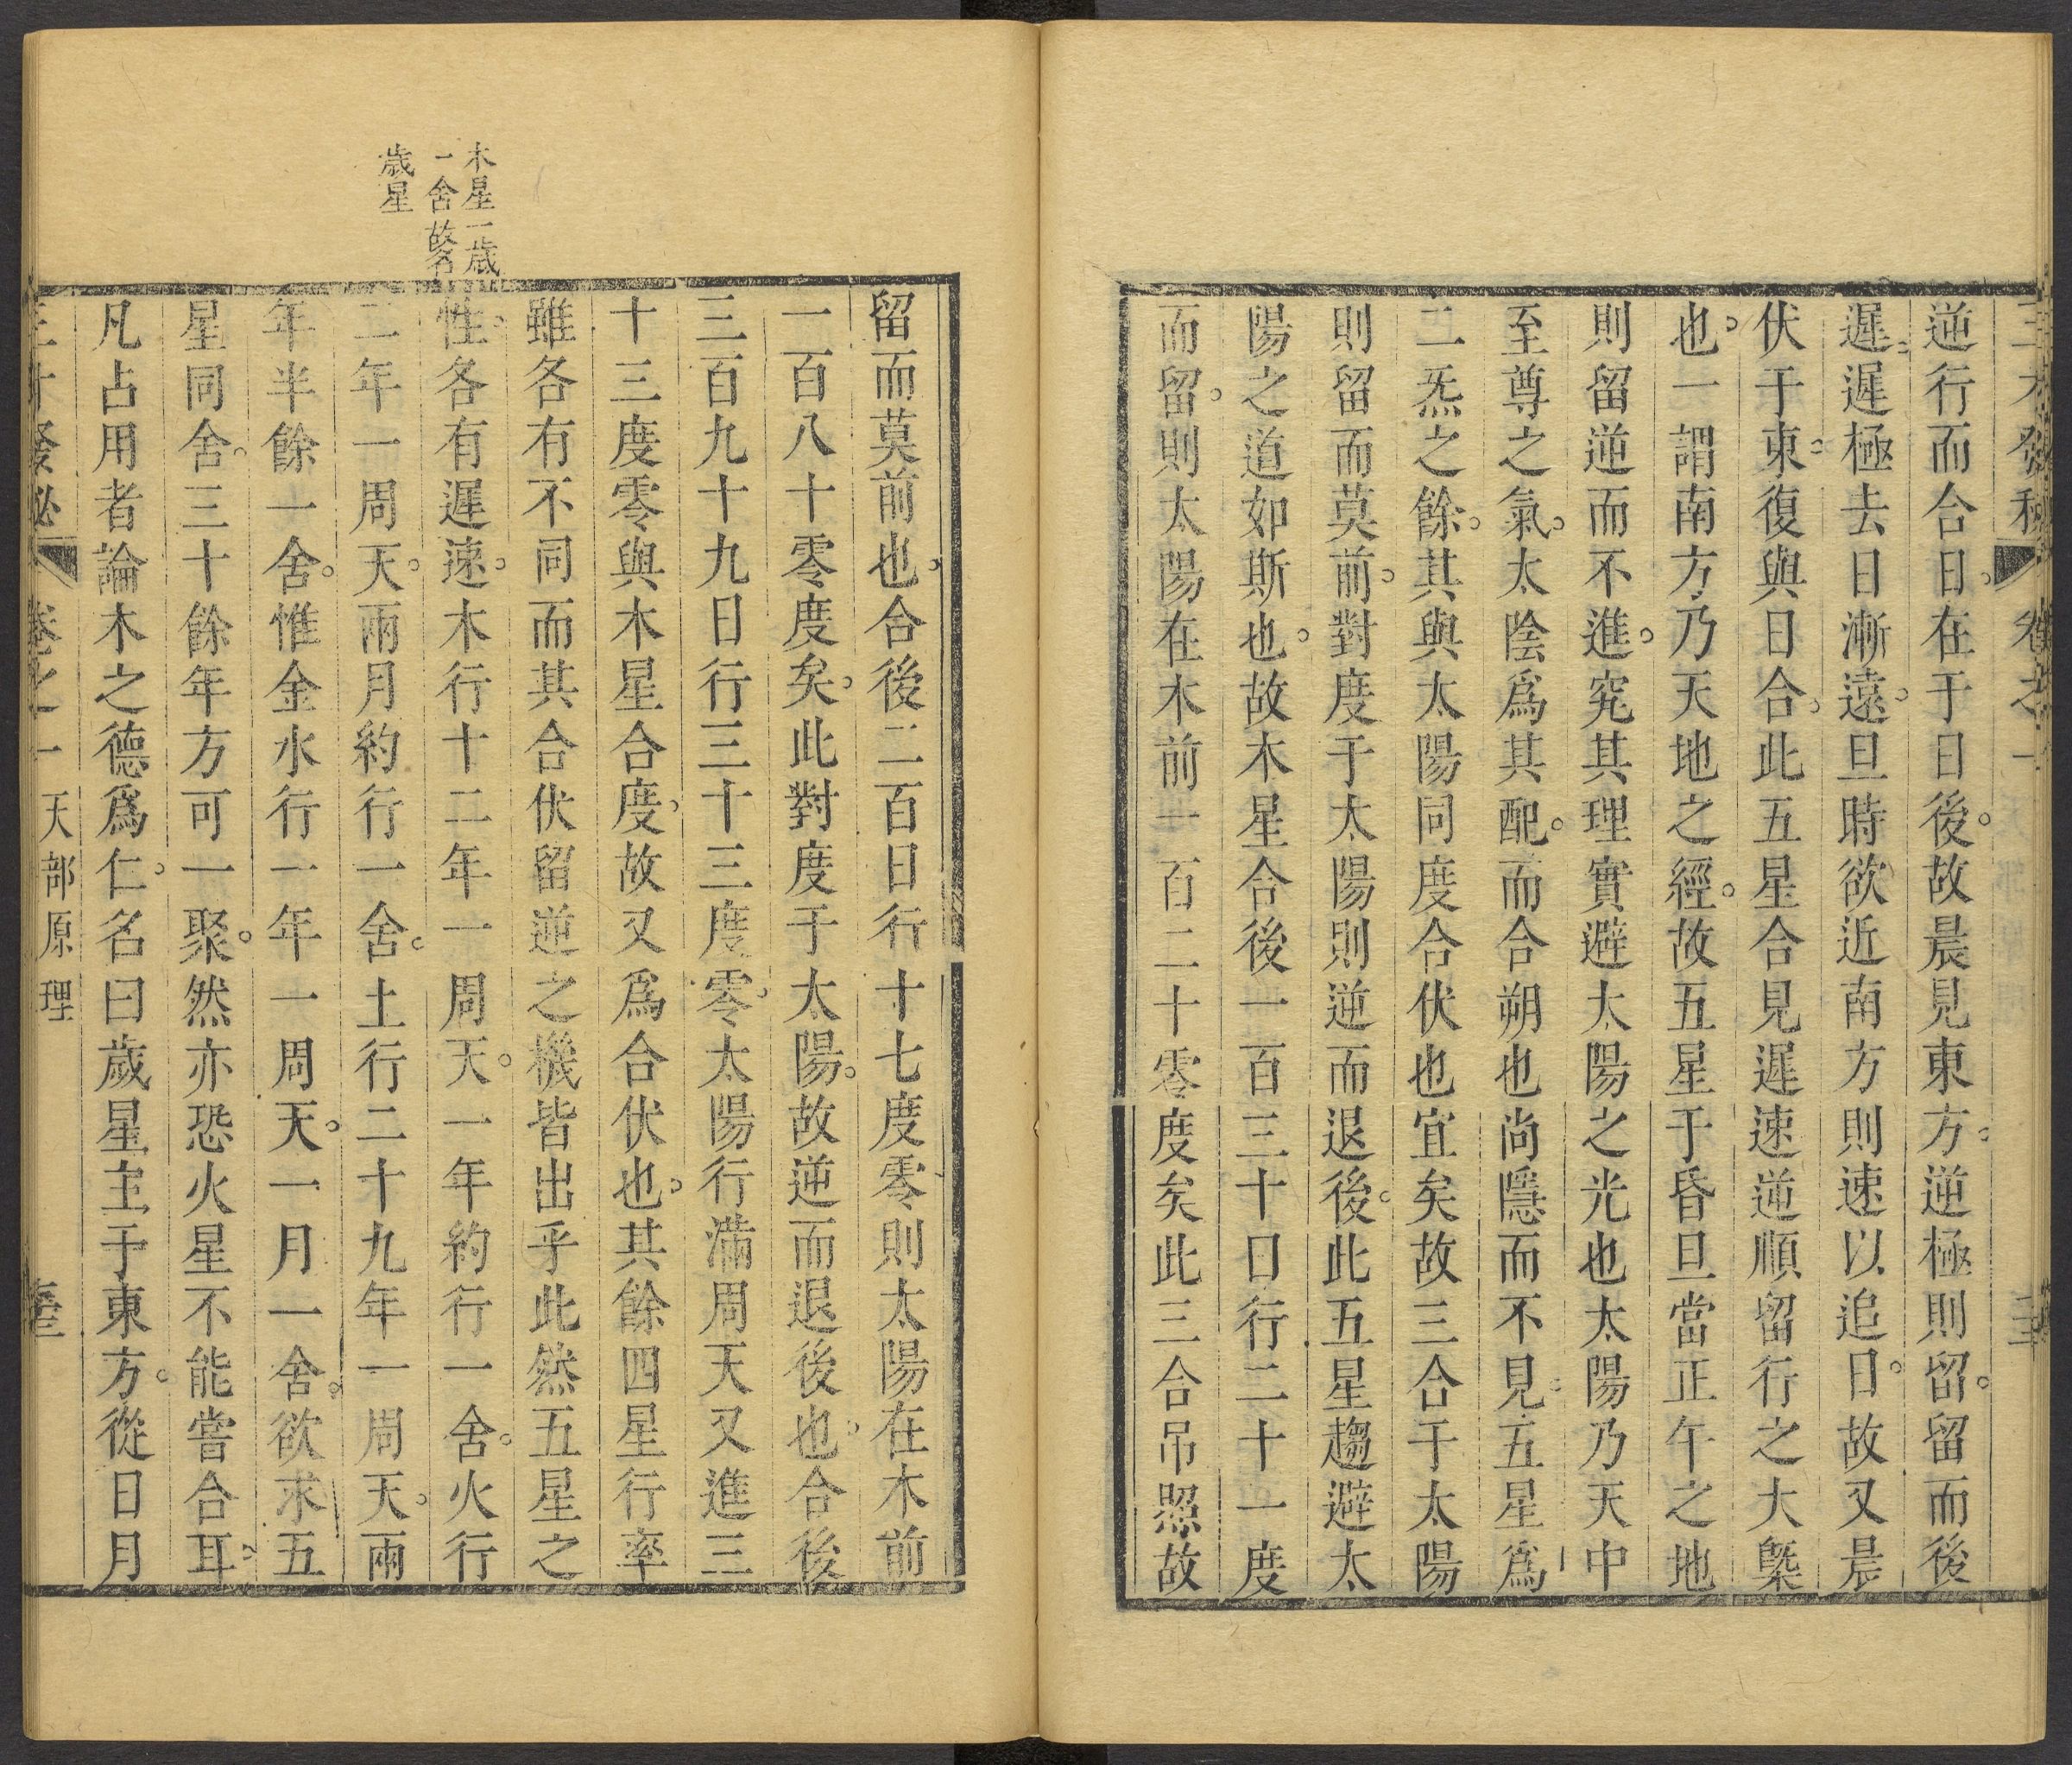 三才發秘 卷之一
逆行而合日。在于日後。故晨見東方。逆極則留。留而後
遲。遲極去日漸遠。旦時欲近南方則速以追日。故又晨
伏于東。復與日合。此五星合見遲速逆順留行之大槩
也。一謂南方乃天地之經。故五星于昏旦當正午之地
則留逆而不進。究其理實避太陽之光也太陽乃天中
至尊之氣。太陰爲其配。而合朔也尚隱而不見。五星爲
二炁之餘。其與太陽同度合伏也宜矣故三合于太陽
則留而莫前。對度于太陽則逆而退後。此五星趨避太
陽之道如斯也。故木星合後一百三十日行二十一度
而留。則太陽在木前一百二十零度矣此三合吊照故
留而莫前也。合後二百日行十七度零則太陽在木前
一百八十零度矣。此對度于太陽。故逆而退後也。合後
三百九十九日行三十三度零。太陽行滿周天又進三
十三度零與木星合度。故又爲合伏也。其餘四星行率
雖各有不同而其合伏留逆之機皆出乎此然五星之
性。各有遲速。木行十二年一周天。一年約行一舍。火行
二年一周天。兩月約行一舍。土行二十九年一周天。兩
年半餘一舍。惟金水行一年一周天。一月一舍。欲求五
星同舍。三十餘年方可一聚。然亦恐火星不能嘗合耳。
凡占用者論木之德爲仁。名曰歲星主于東方。從日月
木星一歲
一舍故名
歲星
三才發秘 卷之一 天部原理